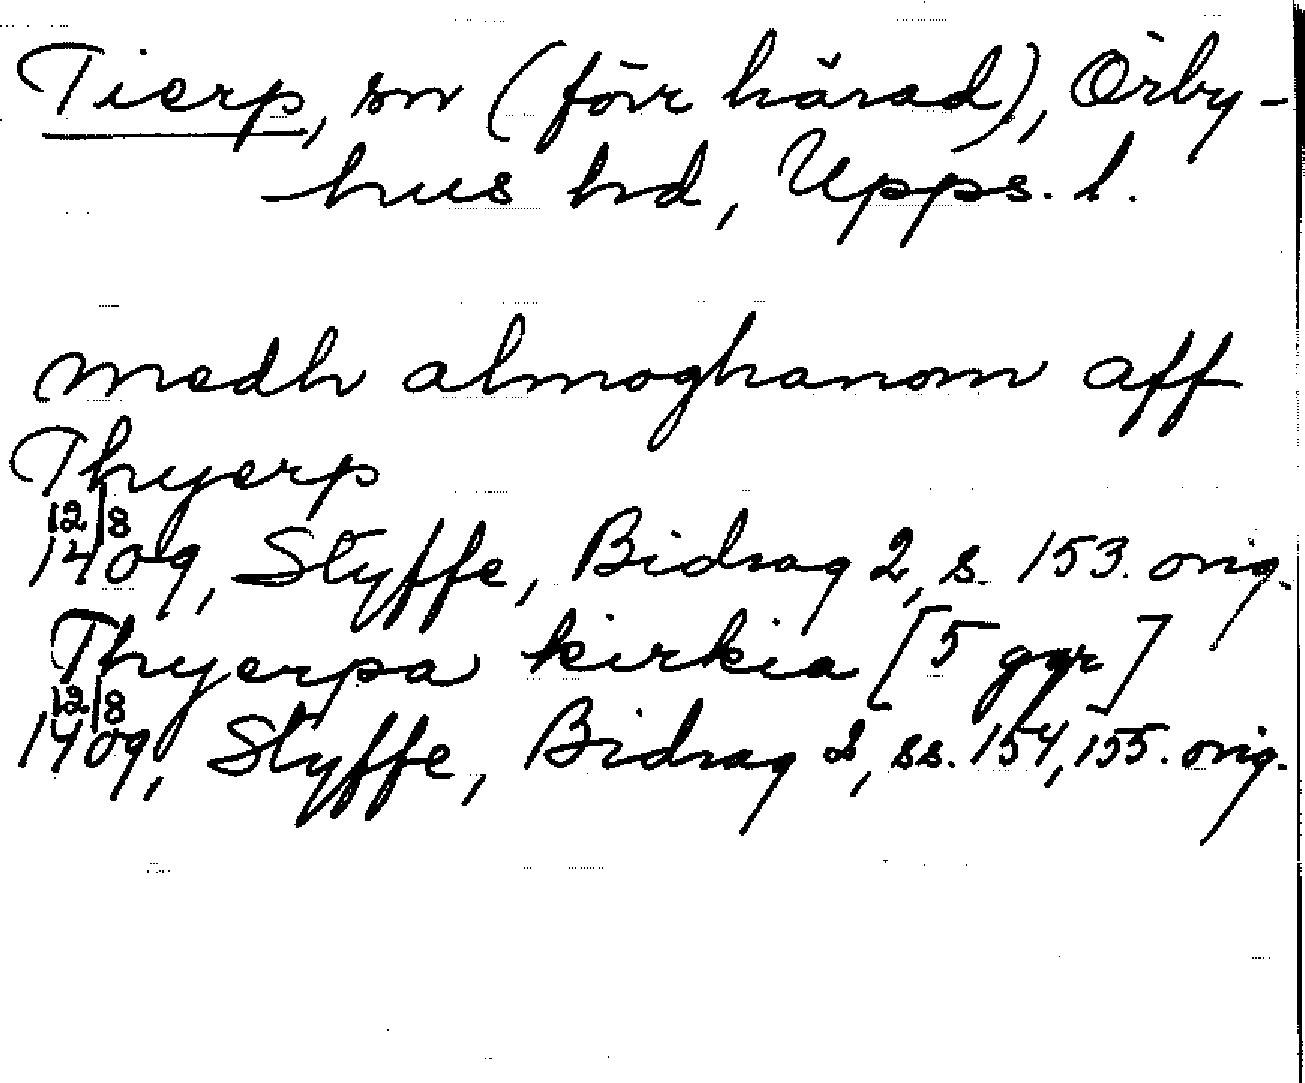 Tierp, sn (förr härad), Örby-
hus hd, Upps. l.
medh almoghanom aff
Thyerp
12/8
1409, Styffe, Bidrag 2, s. 153. orig.
Thyerpa kirkia [5 ggr]
12/8
1409, Styffe, Bidrag 2, ss. 154, 155. orig.